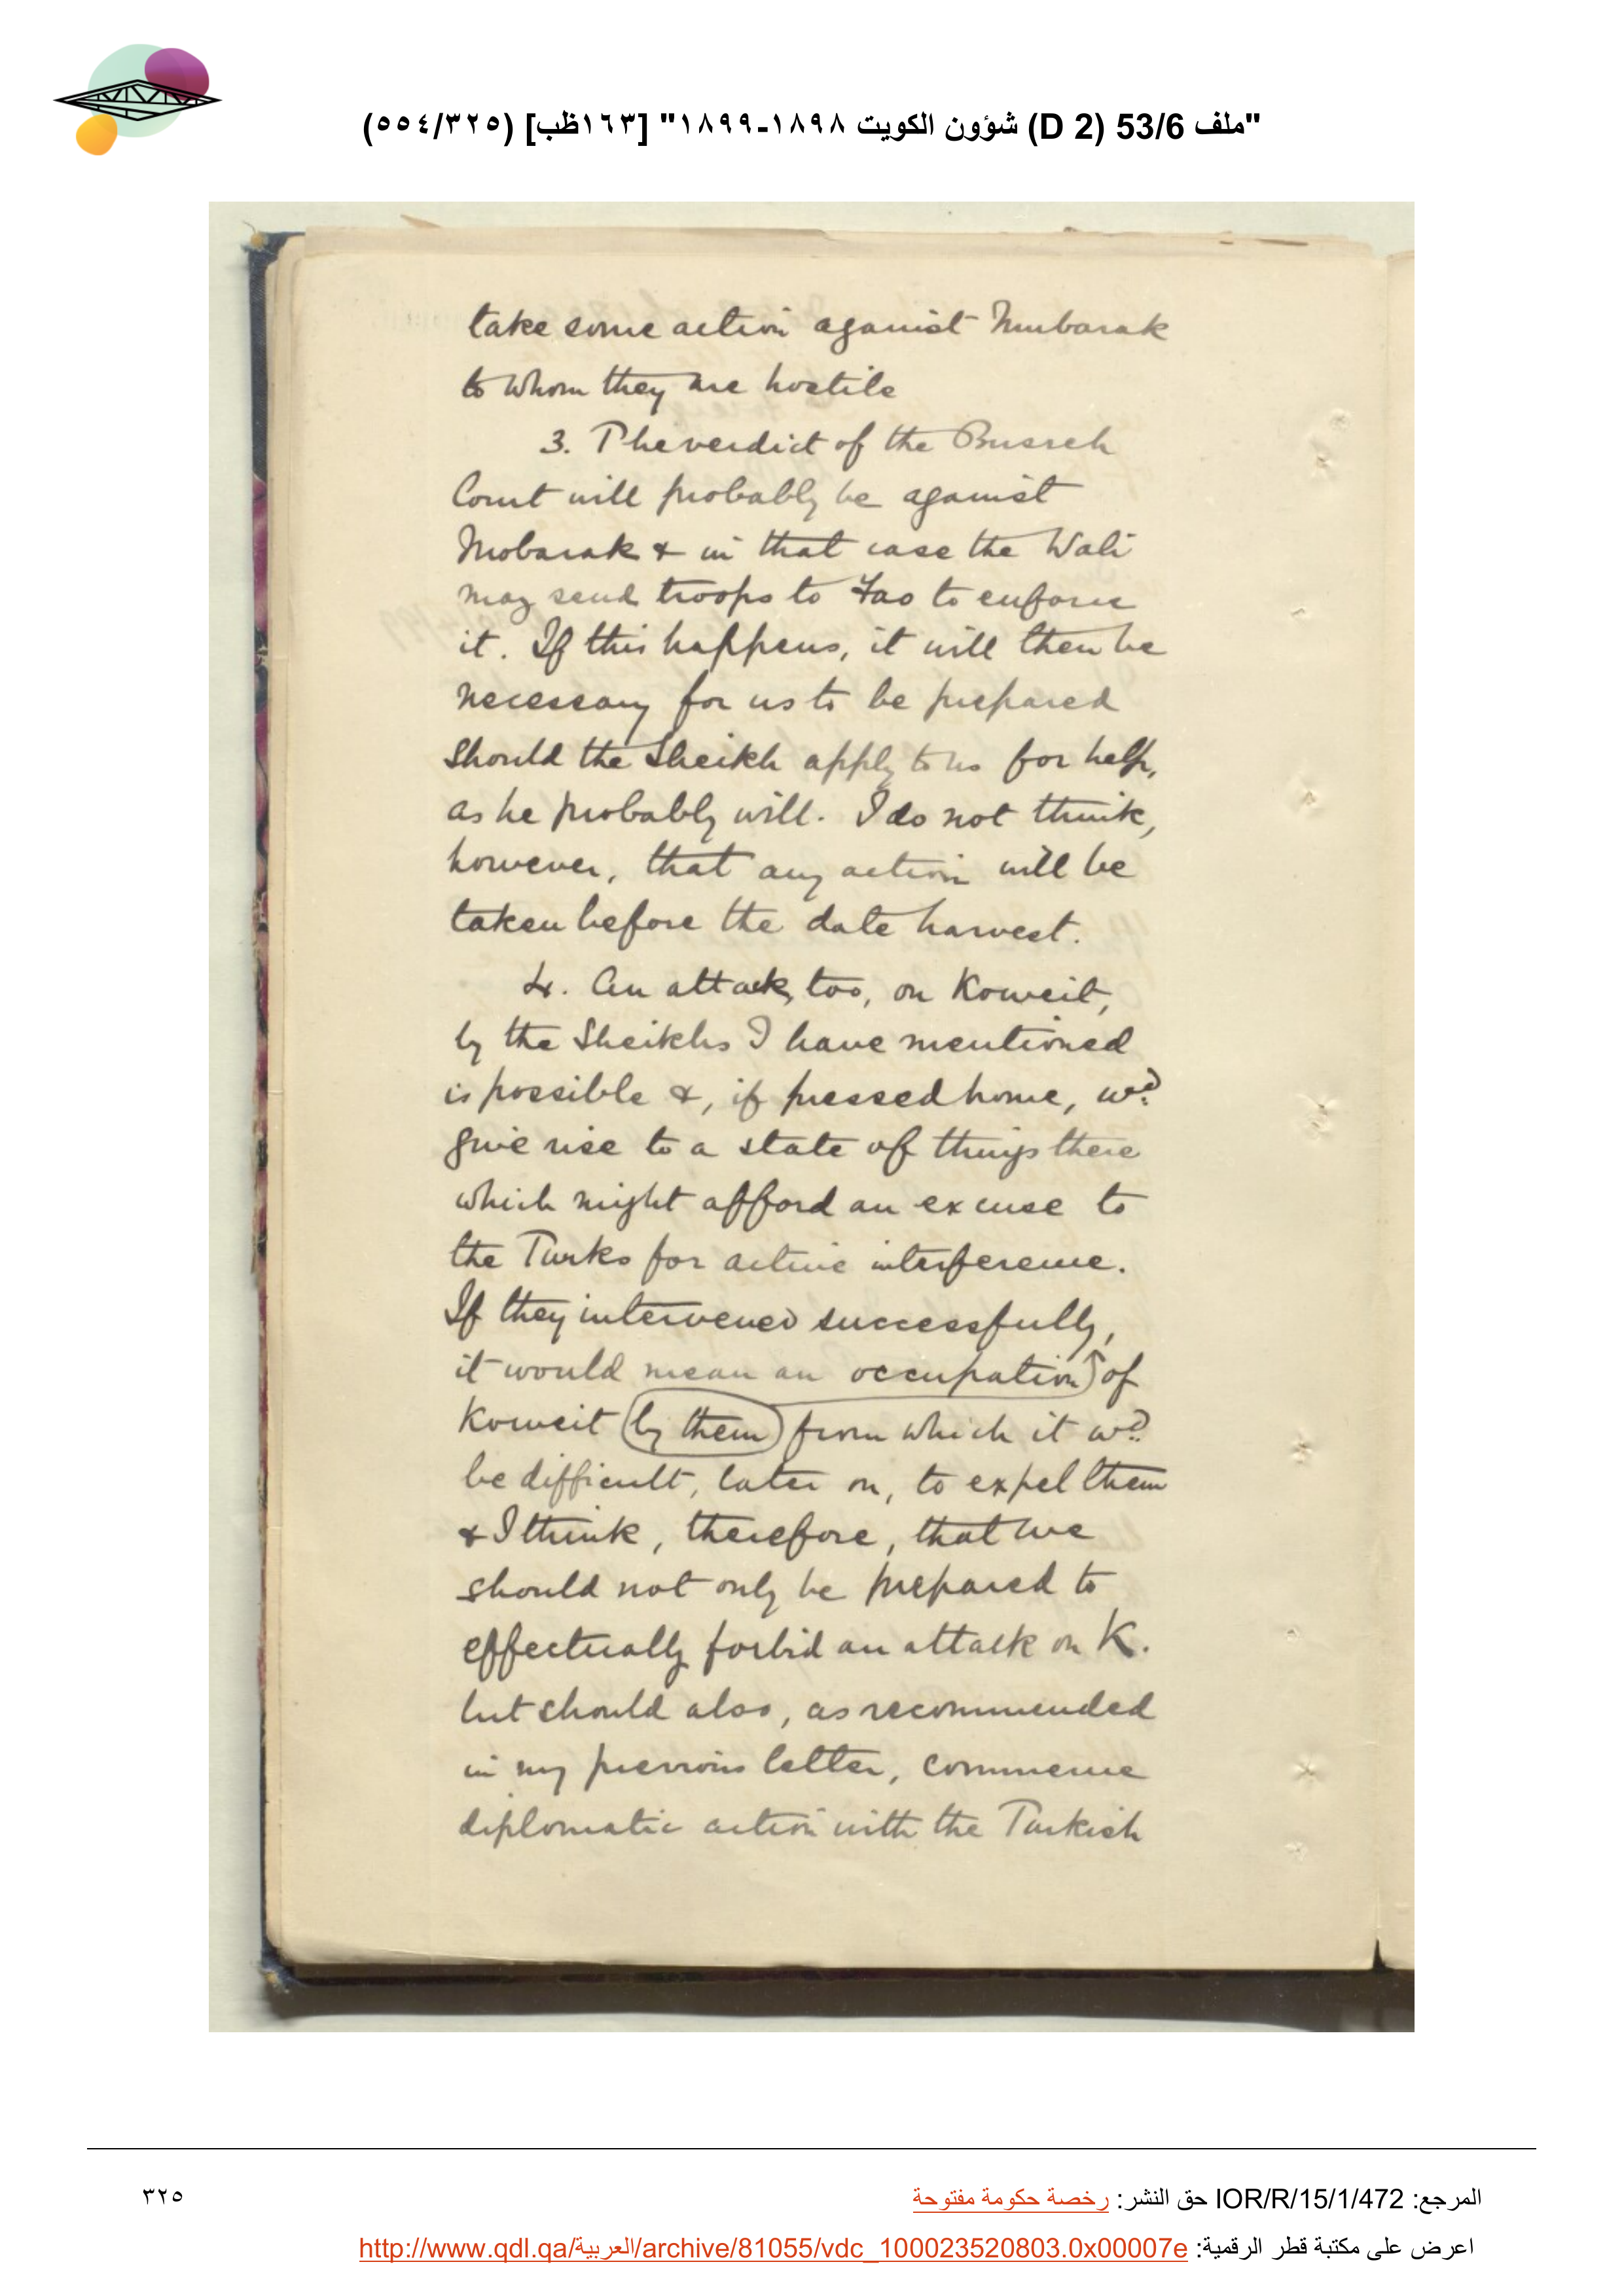 "ملف 53/6 (D 2) شؤون الكويت ١٨٩٨-١٨٩٩" [١٦٣ظب] (٣٢٥/٥٥٤)
take some action against Mubarak
to whom they are hostile
3. The verdict of the Busreh
Court will probably be against
Mobarak & in that case the Wali
may send troops to Fao to enforce
it. If this happens, it will then be
necessary for us to be prepared
should the Sheikh apply to us for help,
as he probably will. I do not think,
however, that any action will be
taken before the date harvest.
4. An attack, too, on Koweit,
by the Sheikhs I have mentioned
is possible &, if pressed home, wd.
give rise to a state of things there
which might afford an excuse to
the Turks for active interference.
If they intervened successfully,
it would mean an occupation of
Koweit by them from which it wd.
be difficult, later on, to expel them
& I think, therefore, that we
should not only be prepared to
effectually forbid an attack on K.
but should also, as recommended
in my previous letter, commence
diplomatic action with the Turkish
المرجع: IOR/R/15/1/472 حق النشر: رخصة حكومة مفتوحة
٣٢٥
اعرض على مكتبة قطر الرقمية: http://www.qdl.qa/العربية/archive/81055/vdc_100023520803.0x00007e